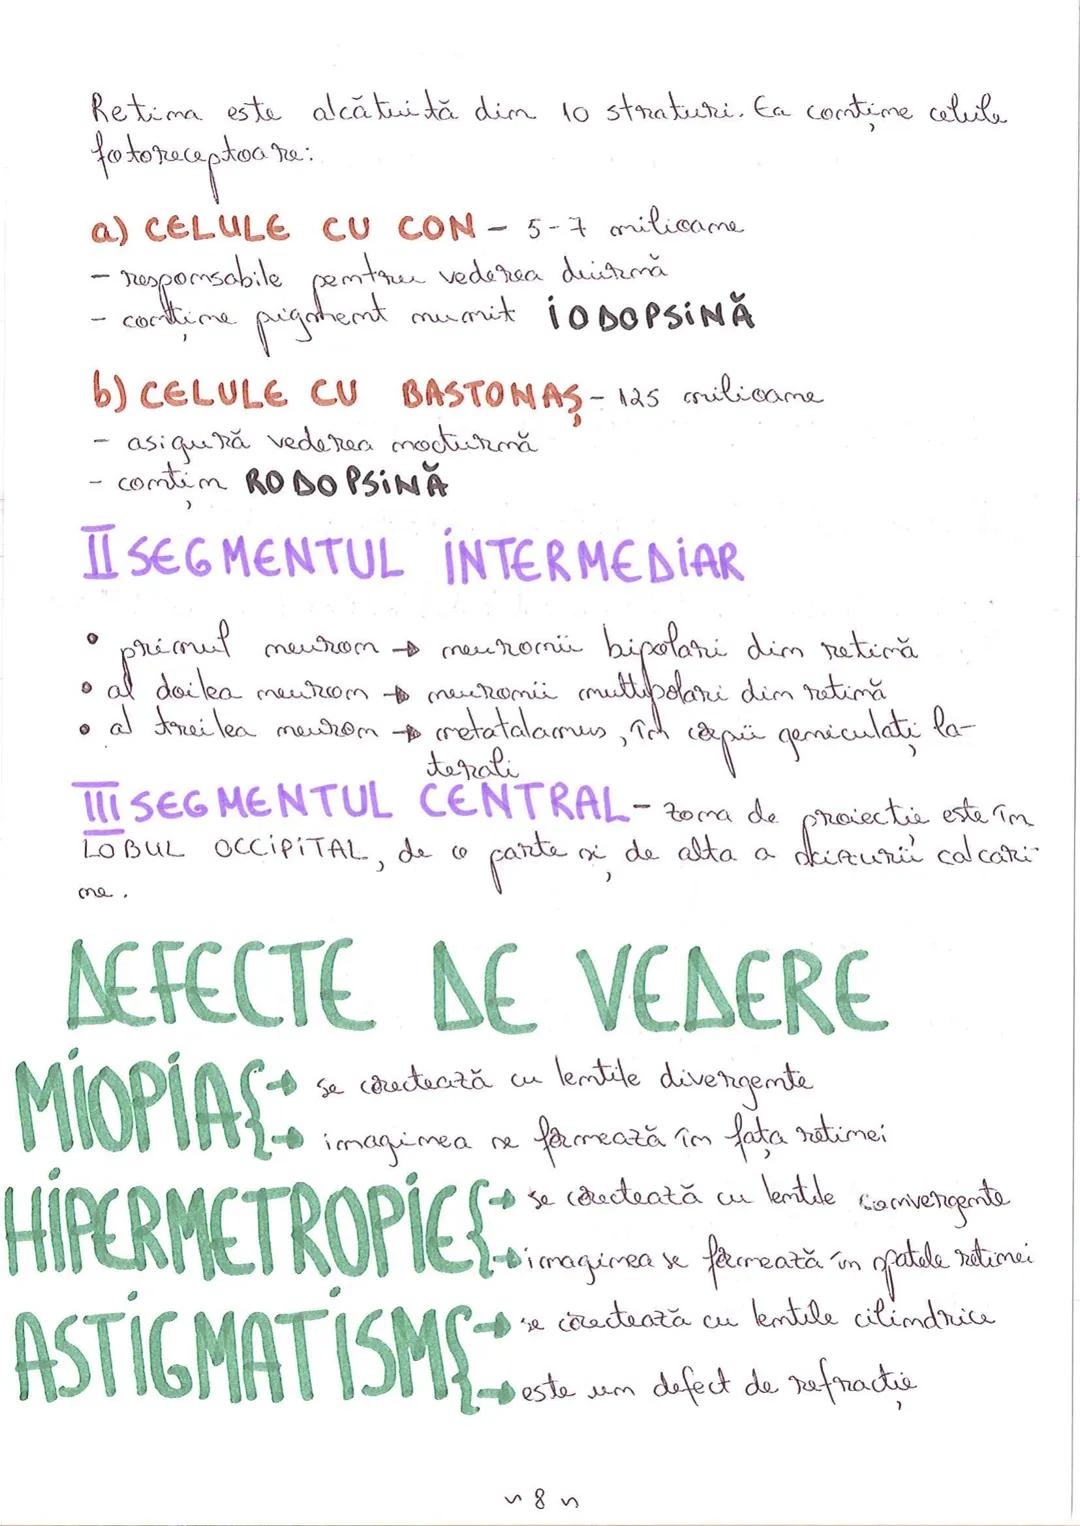 Retina este alcătuită din 10 straturi. Ea conține celule
fotoreceptoare:
a) CELULE CU CON - 5-7 milioane
- responsabile pentru vederea diurnă
- conține pigment numit IODOPSINĂ
b) CELULE CU BASTONAȘ - 125 milioane
- asigură vederea nocturnă
- conțin RODOPSINĂ
II SEGMENTUL INTERMEDIAR
• primul neuron → neuronii bipolari din retină
• al doilea neuron → neuronii multipolari din retină
• al treilea neuron → metatalamus, în corpii geniculați la-
terali
III SEGMENTUL CENTRAL - zona de proiecție este în
LOBUL OCCIPITAL, de o parte și de alta a scizurii calcari-
ne.
DEFECTE DE VEDERE
MIOPIA { → se corectează cu lentile divergente
→ imaginea se formează în fața retinei
HIPERMETROPIE { → se corectează cu lentile convergente
→ imaginea se formează în spatele retinei
ASTIGMATISM { → se corectează cu lentile cilindrice
→ este un defect de refracție
~ 8 ~